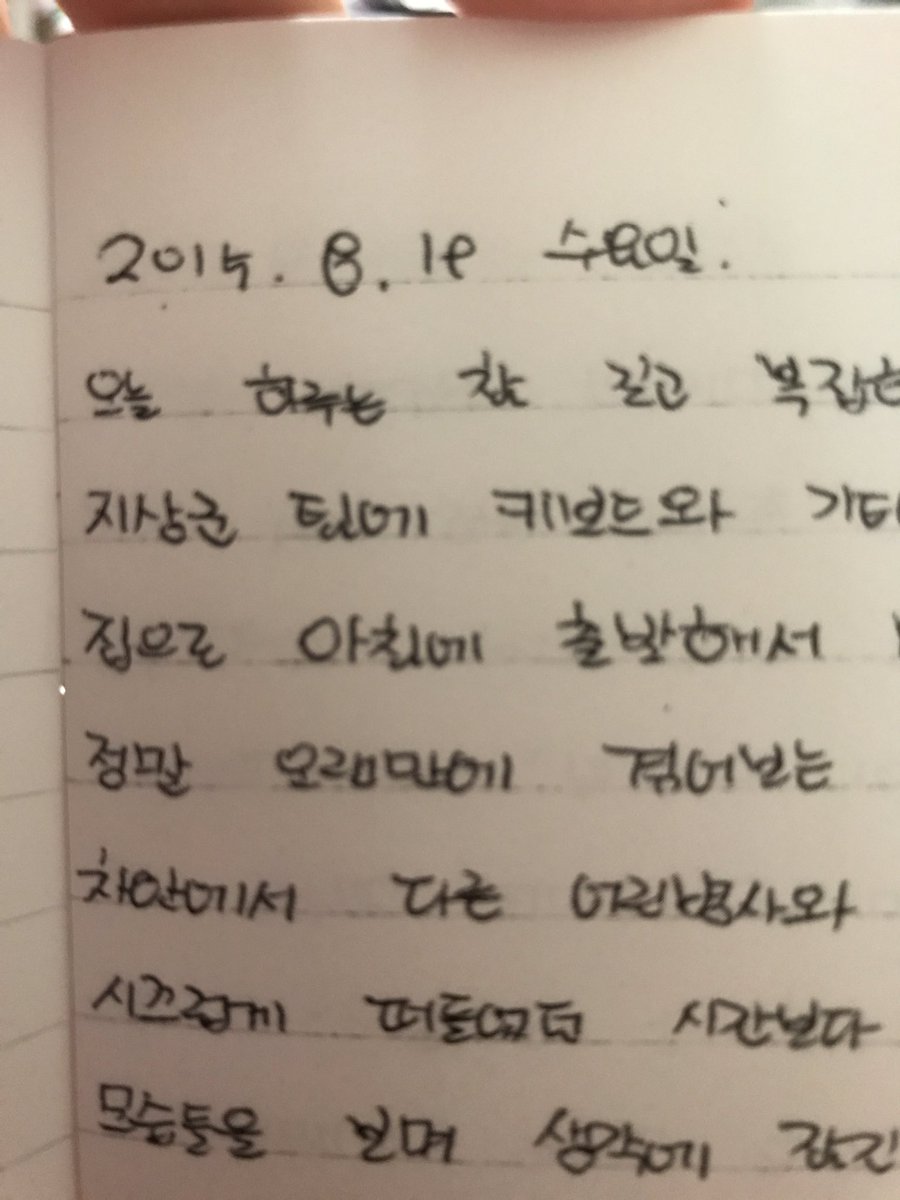 2015. 8. 19 수요일.
오늘 하루는 참 길고
지상군 팀에 키보드와
집으로 아침에 출발해서
정말 오랜만에 겪어보는
차안에서 다른 어린병사와
시끄럽게 떠들었던 시간보다
모습들을 보며 생각에 잠긴